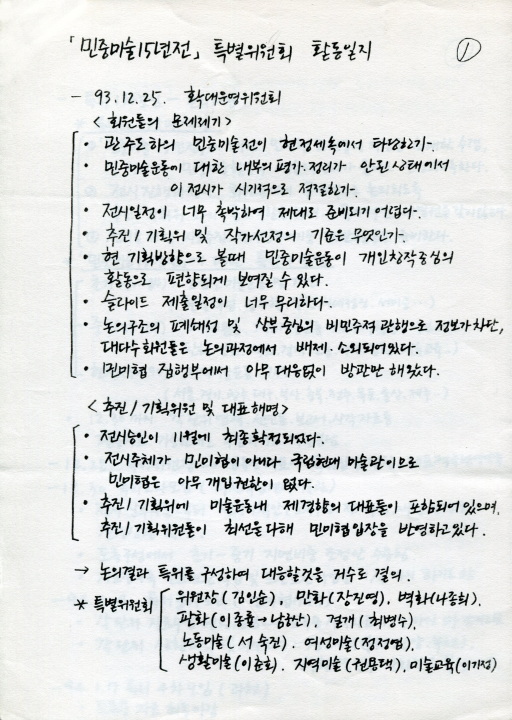 「민중미술15년전」 특별위원회 활동일지 ①
- 93.12.25. 확대운영위원회
<회원들의 문제제기>
• 관주도하의 민중미술전이 현정세속에서 타당한가.
• 민중미술운동에 대한 내부의 평가.정리가 안된 상태에서
이 전시가 시기적으로 적절한가.
• 전시일정이 너무 촉박하여 제대로 준비되기 어렵다.
• 추진/기획위 및 작가선정의 기준은 무엇인가.
• 현 기획방향으로 볼때 민중미술운동이 개인창작중심의
활동으로 편향되게 보여질 수 있다.
• 슬라이드 제출일정이 너무 무리하다.
• 논의구조의 폐쇄성 및 상부중심의 비민주적 관행으로 정보가 차단,
대다수회원들은 논의과정에서 배제.소외되어있다.
• 민미협 집행부에서 아무 대응없이 방관만 해왔다.
<추진/기획위원 및 대표해명>
• 전시승인이 11월에 최종확정되었다.
• 전시주체가 민미협이 아니라 국립현대미술관이므로
민미협은 아무 개입권한이 없다.
• 추진/기획위에 미술운동내 제경향의 대표들이 포함되어 있으며,
추진/기획위원들이 최선을 다해 민미협입장을 반영하고있다.
→ 논의결과 특위를 구성하여 대응할것을 거수로 결의.
* 특별위원회 위원장(김인순), 만화(장진영), 벽화(나종희),
판화(이홍률→남한산), 걸개(최병수),
노동미술(서숙진). 여성미술(정정엽).
생활미술(이춘호). 지역미술(권용택), 미술교육(이기정)